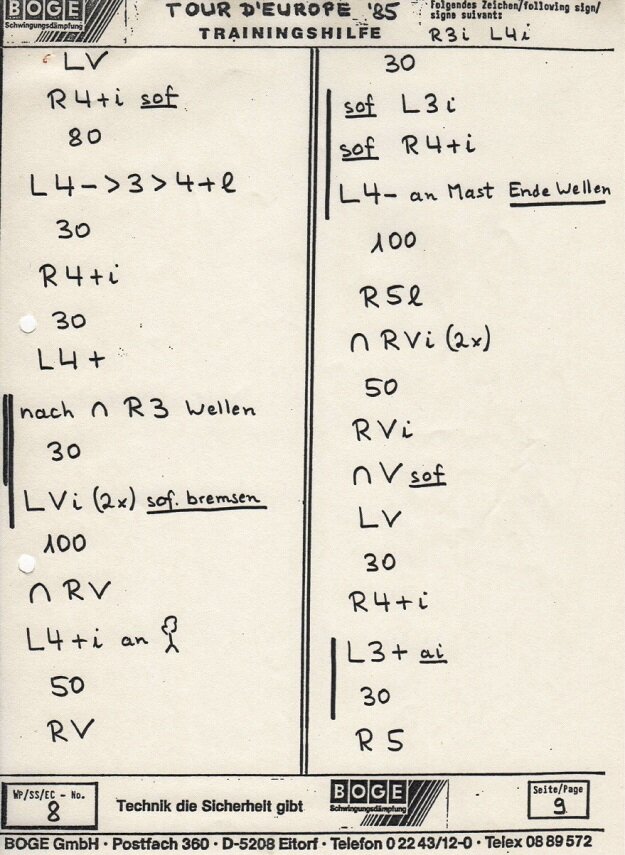 BOGE
Schwingungsdämpfung
TOUR D'EUROPE '85
TRAININGSHILFE
Folgendes Zeichen/following sign/
signe suivant:
R3i L4i
LV
R4+i sof
80
L4->3>4+l
30
R4+i
30
L4+
nach ∩ R3 Wellen
30
LVi (2x) sof. bremsen
100
∩ RV
L4+i an
50
RV
30
sof L3i
sof R4+i
L4- an Mast Ende Wellen
100
R5l
∩ RVi (2x)
50
RVi
∩V sof
LV
30
R4+i
L3+ ai
30
R5
WP/SS/EC - No.
8
Technik die Sicherheit gibt
BOGE
Schwingungsdämpfung
Seite/Page
9
BOGE GmbH · Postfach 360 · D-5208 Eitorf · Telefon 0 22 43/12-0 · Telex 08 89 572